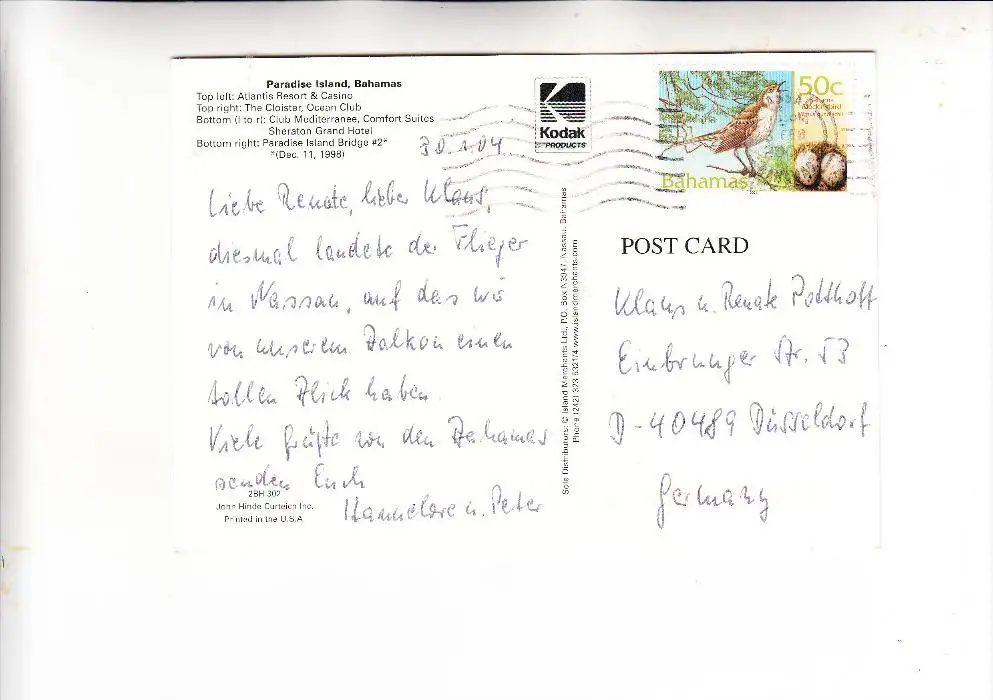 Paradise Island, Bahamas
Top left: Atlantis Resort & Casino
Top right: The Cloister, Ocean Club
Bottom (l to r): Club Mediterranee, Comfort Suites
Sheraton Grand Hotel
Bottom right: Paradise Island Bridge #2*
*(Dec. 11, 1998)
30.1.04
Liebe Renate, lieber Klaus,
diesmal landete der Flieger
in Nassau, auf das wir
von unserem Balkon einen
tollen Blick haben.
Viele Grüße von den Bahamas
senden Euch
Hannelore u. Peter
2BH 302
John Hinde Curteich Inc.
Printed in the U.S.A.
Sole Distributors: © Island Merchants Ltd., P.O. Box N3947, Nassau, Bahamas
Phone (242) 323 6321/4 www.islandmerchants.com
Kodak
PRODUCTS
50c
Bahamas
POST CARD
Klaus u. Renate Potthoff
Einbrunger Str. 53
D-40489 Düsseldorf
Germany